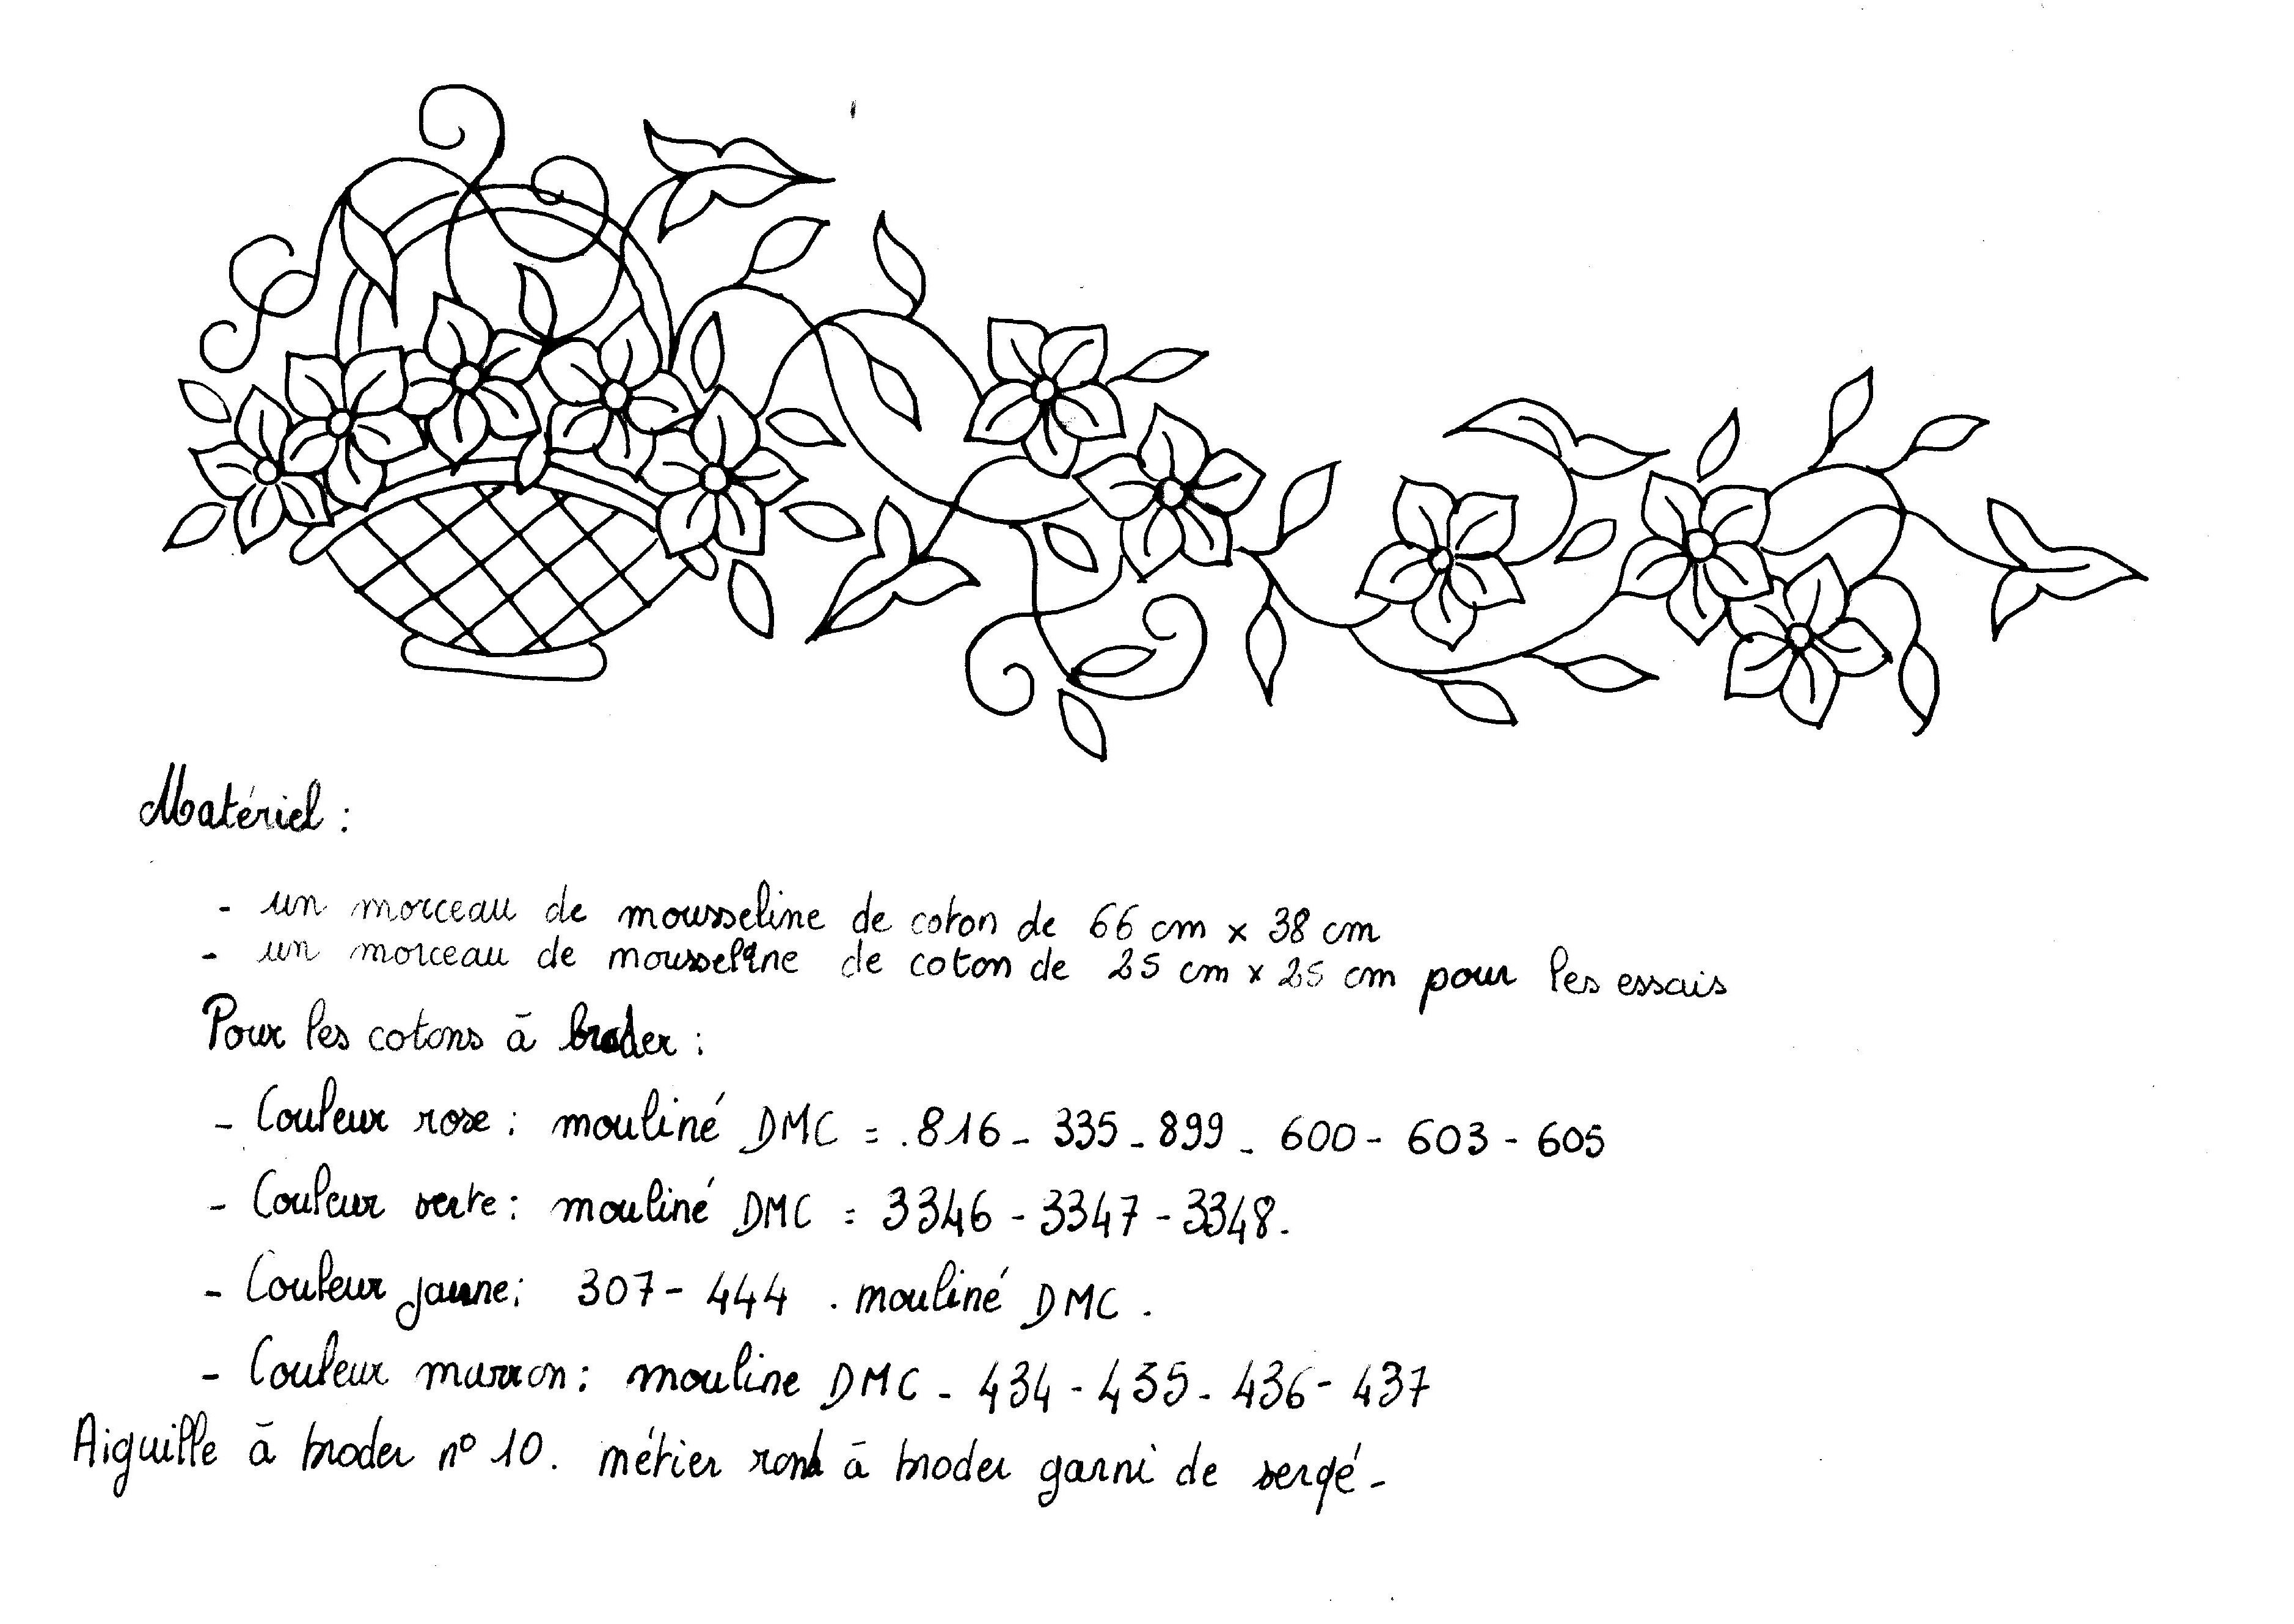 Matériel :
- un morceau de mousseline de coton de 66 cm x 38 cm
- un morceau de mousseline de coton de 25 cm x 25 cm pour les essais
Pour les cotons à broder :
- Couleur rose : mouliné DMC = .816 - 335 - 899 - 600 - 603 - 605
- Couleur verte : mouliné DMC = 3346 - 3347 - 3348.
- Couleur jaune : 307 - 444 . mouliné DMC .
- Couleur marron : mouline DMC - 434 - 435 - 436 - 437
Aiguille à broder n° 10. métier rond à broder garni de sergé -